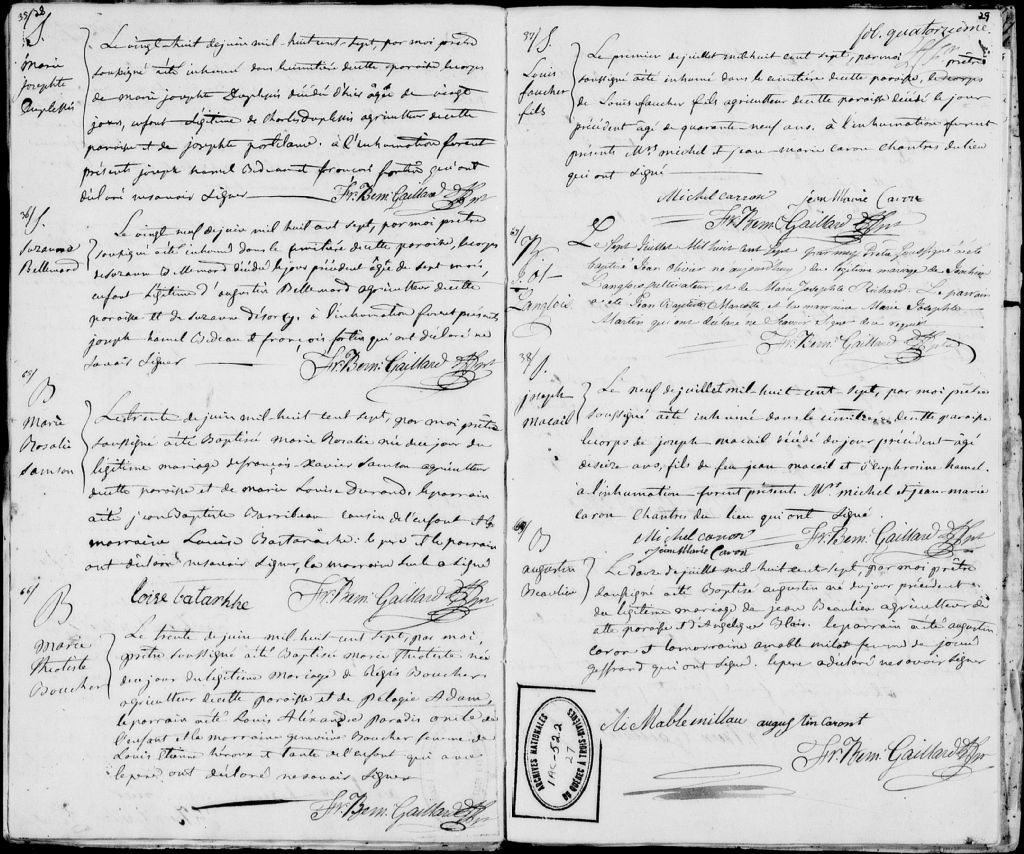 35/ 28
S.
Marie
josephte
Duplessis
Le vingt-huit de juin mil huit cent-sept, par moi prêtre
soussigné a été inhumé dans le cimetière de cette paroisse, le corps
de marie josephte Duplessis décédé d'hier âgée de vingt
jours, enfant légitime de Charles Duplessis agriculteur de cette
paroisse et de josephte portelance. à l'inhumation furent
présents joseph hamel Bedeau et françois fortin qui ont
déclaré ne savoir signer
Fr. Bern: Gaillard Ptre
36/ S.
Suzanne
Bellemard
Le vingt neuf de juin mil huit cent sept, par moi prêtre
soussigné a été inhumé dans le cimetière de cette paroisse, le corps
de suzanne Bellemard décédé le jour précédent âgée de sept mois,
enfant légitime d'augustin Bellemard agriculteur de cette
paroisse et de suzanne . à l'inhumation furent présents
joseph hamel Bedeau et françois fortin qui ont déclaré ne
savoir signer
Fr. Bern: Gaillard Ptre
65/
B
Marie
Rosalie
Samson
Le trente de juin mil huit cent sept, par moi prêtre
soussigné a été Baptisé Marie Rosalie née du jour du
légitime mariage de françois-Xavier Samson agriculteur
de cette paroisse et de marie Louise Durand. le parrain
a été jean Baptiste Barribeau cousin de l'enfant et la
marraine Louise Bastarache: le pere et le parrain
ont déclaré ne savoir signer, la marraine seule a signé
loise batarhhe Fr. Bern: Gaillard Ptre
66/
B
Marie
Thioteste
Boucher
Le trente de juin mil huit-cent sept, par moi
prêtre soussigné a été Baptisé Marie Thioteste née
du jour du légitime Mariage de Régis Boucher
agriculteur de cette paroisse et de Pélagie Adam,
le parrain a été Louis Alexandre Paradis oncle de
l'enfant et la marraine geneviève Boucher femme de
Louis Etienne héroux et tante de l'enfant qui avec
le pere ont déclaré ne savoir signer
Fr. Bern: Gaillard Ptre
29
fol. quatorzieme
37/ S.
Louis
faucher
fils
Le premier de juillet mil huit cent sept, par moi prêtre
soussigné a été inhumé dans le cimetière de cette paroisse, le corps
de Louis faucher fils agriculteur de cette paroisse décédé le jour
précédent agé de quarante-neuf ans. à l'inhumation furent
présents Mrs michel et jean-marie caron Chantres du lieu
qui ont signé
Michel carron jean Marie Caron
Fr. Bern: Gaillard Ptre
67/
Langlois
Le Sept Juillet Mil huit cent Sept par moy Pretre Soussigné a été
baptisé Jean Olivier né aujourdhuy du legitime mariage de Joachim
Langlois cultivateur et de Marie Josephte Richard. Le parrain
a été Jean Baptiste Marcotte et la marraine Marie Josephte
Martin qui ont declaré ne Savoir Signé de ce requis
Fr. Bern: Gaillard Ptre
38/ S.
joseph
macail
Le neuf de juillet mil huit cent sept, par moi prêtre
soussigné a été inhumé dans le cimetiere de cette paroisse
le corps de joseph macail décédé du jour précédent âgé
de seize ans, fils de feu jean macail et d'Euphrosine hamel.
à l'inhumation furent présents Mrs michel et jean-marie
caron Chantres du lieu qui ont signé
Michel carron Fr. Bern: Gaillard Ptre
jean Marie Caron
68/
B
augustin
Beaulieu
Le douze de juillet mil huit cent-sept, par moi prêtre
soussigné a été Baptisé augustin né du jour précédent
du légitime mariage de jean Beaulieu agriculteur de
cette paroisse et d'Angelique Blais. le parrain a été augustin
caron et la marraine amable milot femme de josué
geffrard qui ont signé. le pere a déclaré ne savoir signer
Mable millau augustin caront
Fr. Bern: Gaillard Ptre
ARCHIVES NATIONALES
DU QUÉBEC À TROIS-RIVIÈRES
27